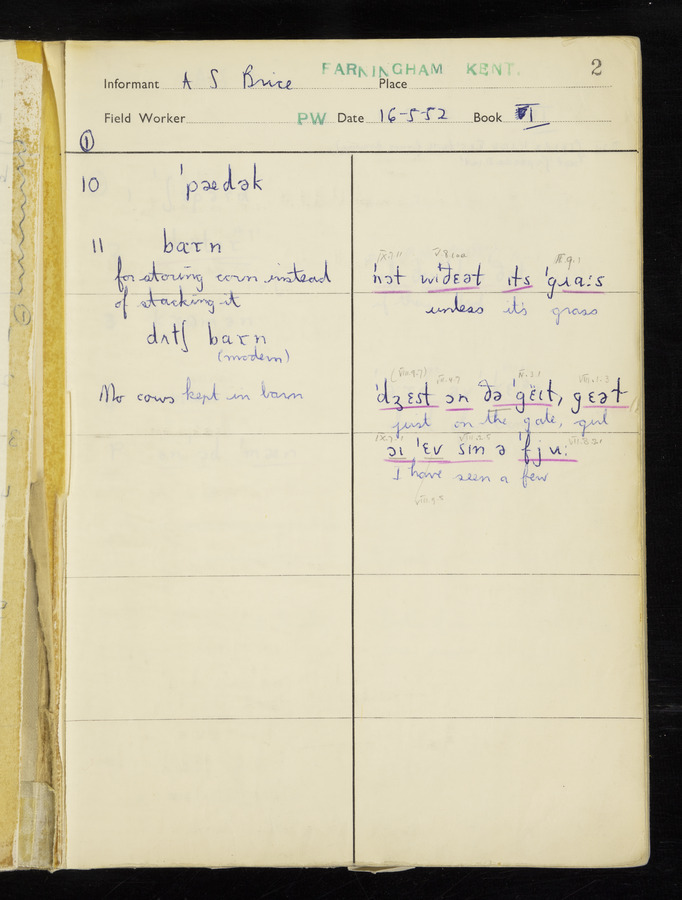 FARNINGHAM KENT.
2
Informant A S Brice Place
Field Worker PW Date 16-5-52 Book VI
①
10 ˈpædək
11 barn
for storing corn instead
of stacking it
dʌtʃ barn
(modern)
No cows kept in barn
IX.9.11 V.8.10a III.9.1
nət wɪðɛət ɪts ˈgɹaːs
unless it's grass
(VIII.9.7) IX.4.7 IV.3.1 VIII.1.3
ˈdʒɛst ɔn ðə ˈgɛɪt, gɛət
just on the gate, girl
VIII.2.5 VII.8.21
ɔɪ ˈɛv sɪn ə ˈfjuː
I have seen a few
VIII.9.5